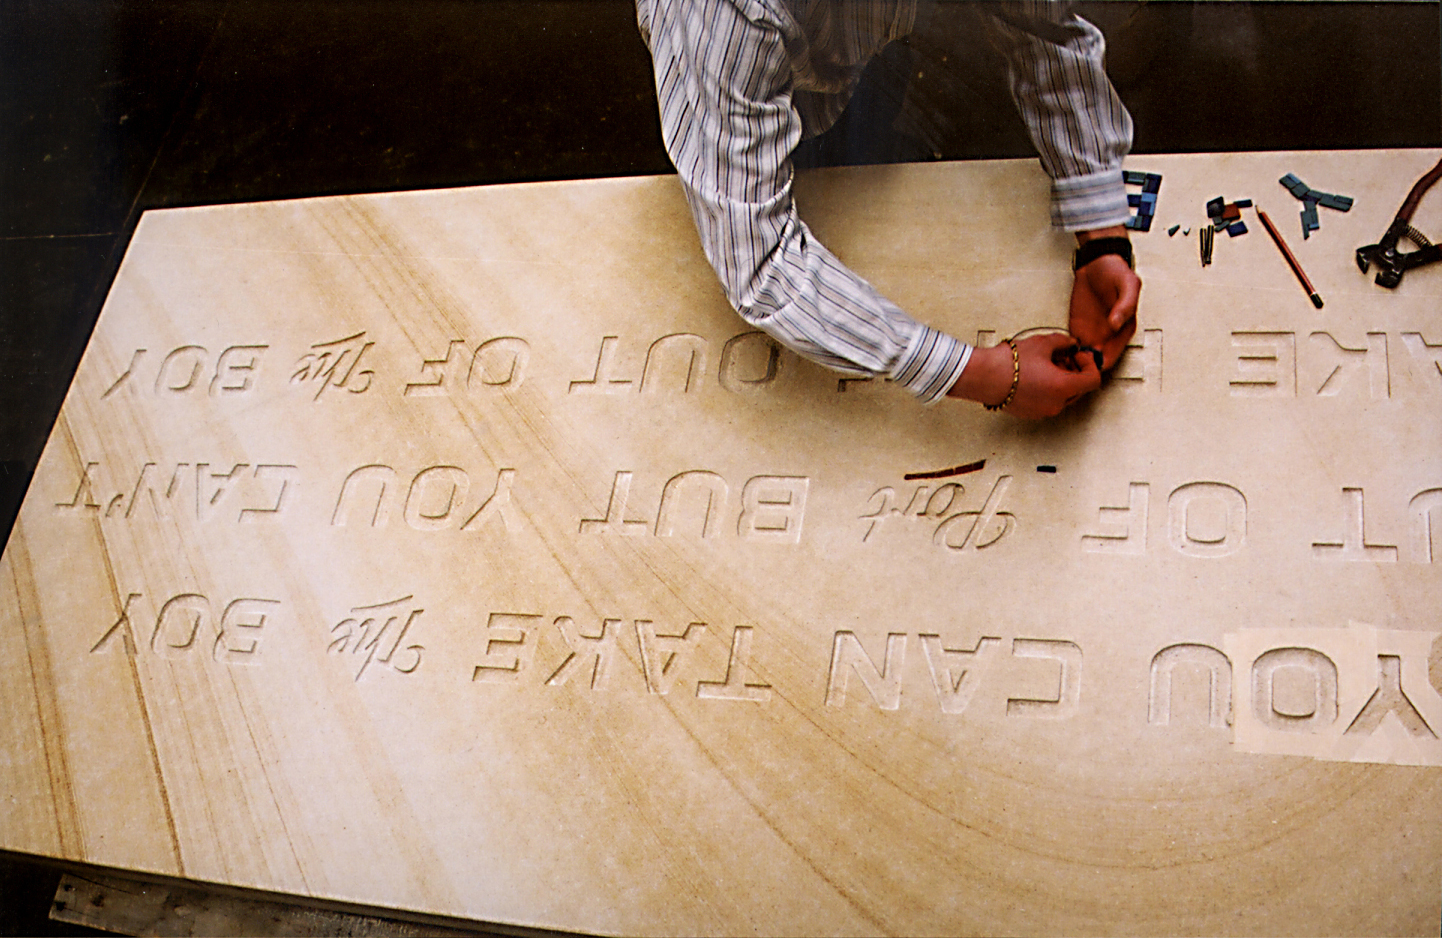 YOU CAN TAKE The BOY
UT OF Port BUT YOU CAN'T
AKE OUT OF The BOY